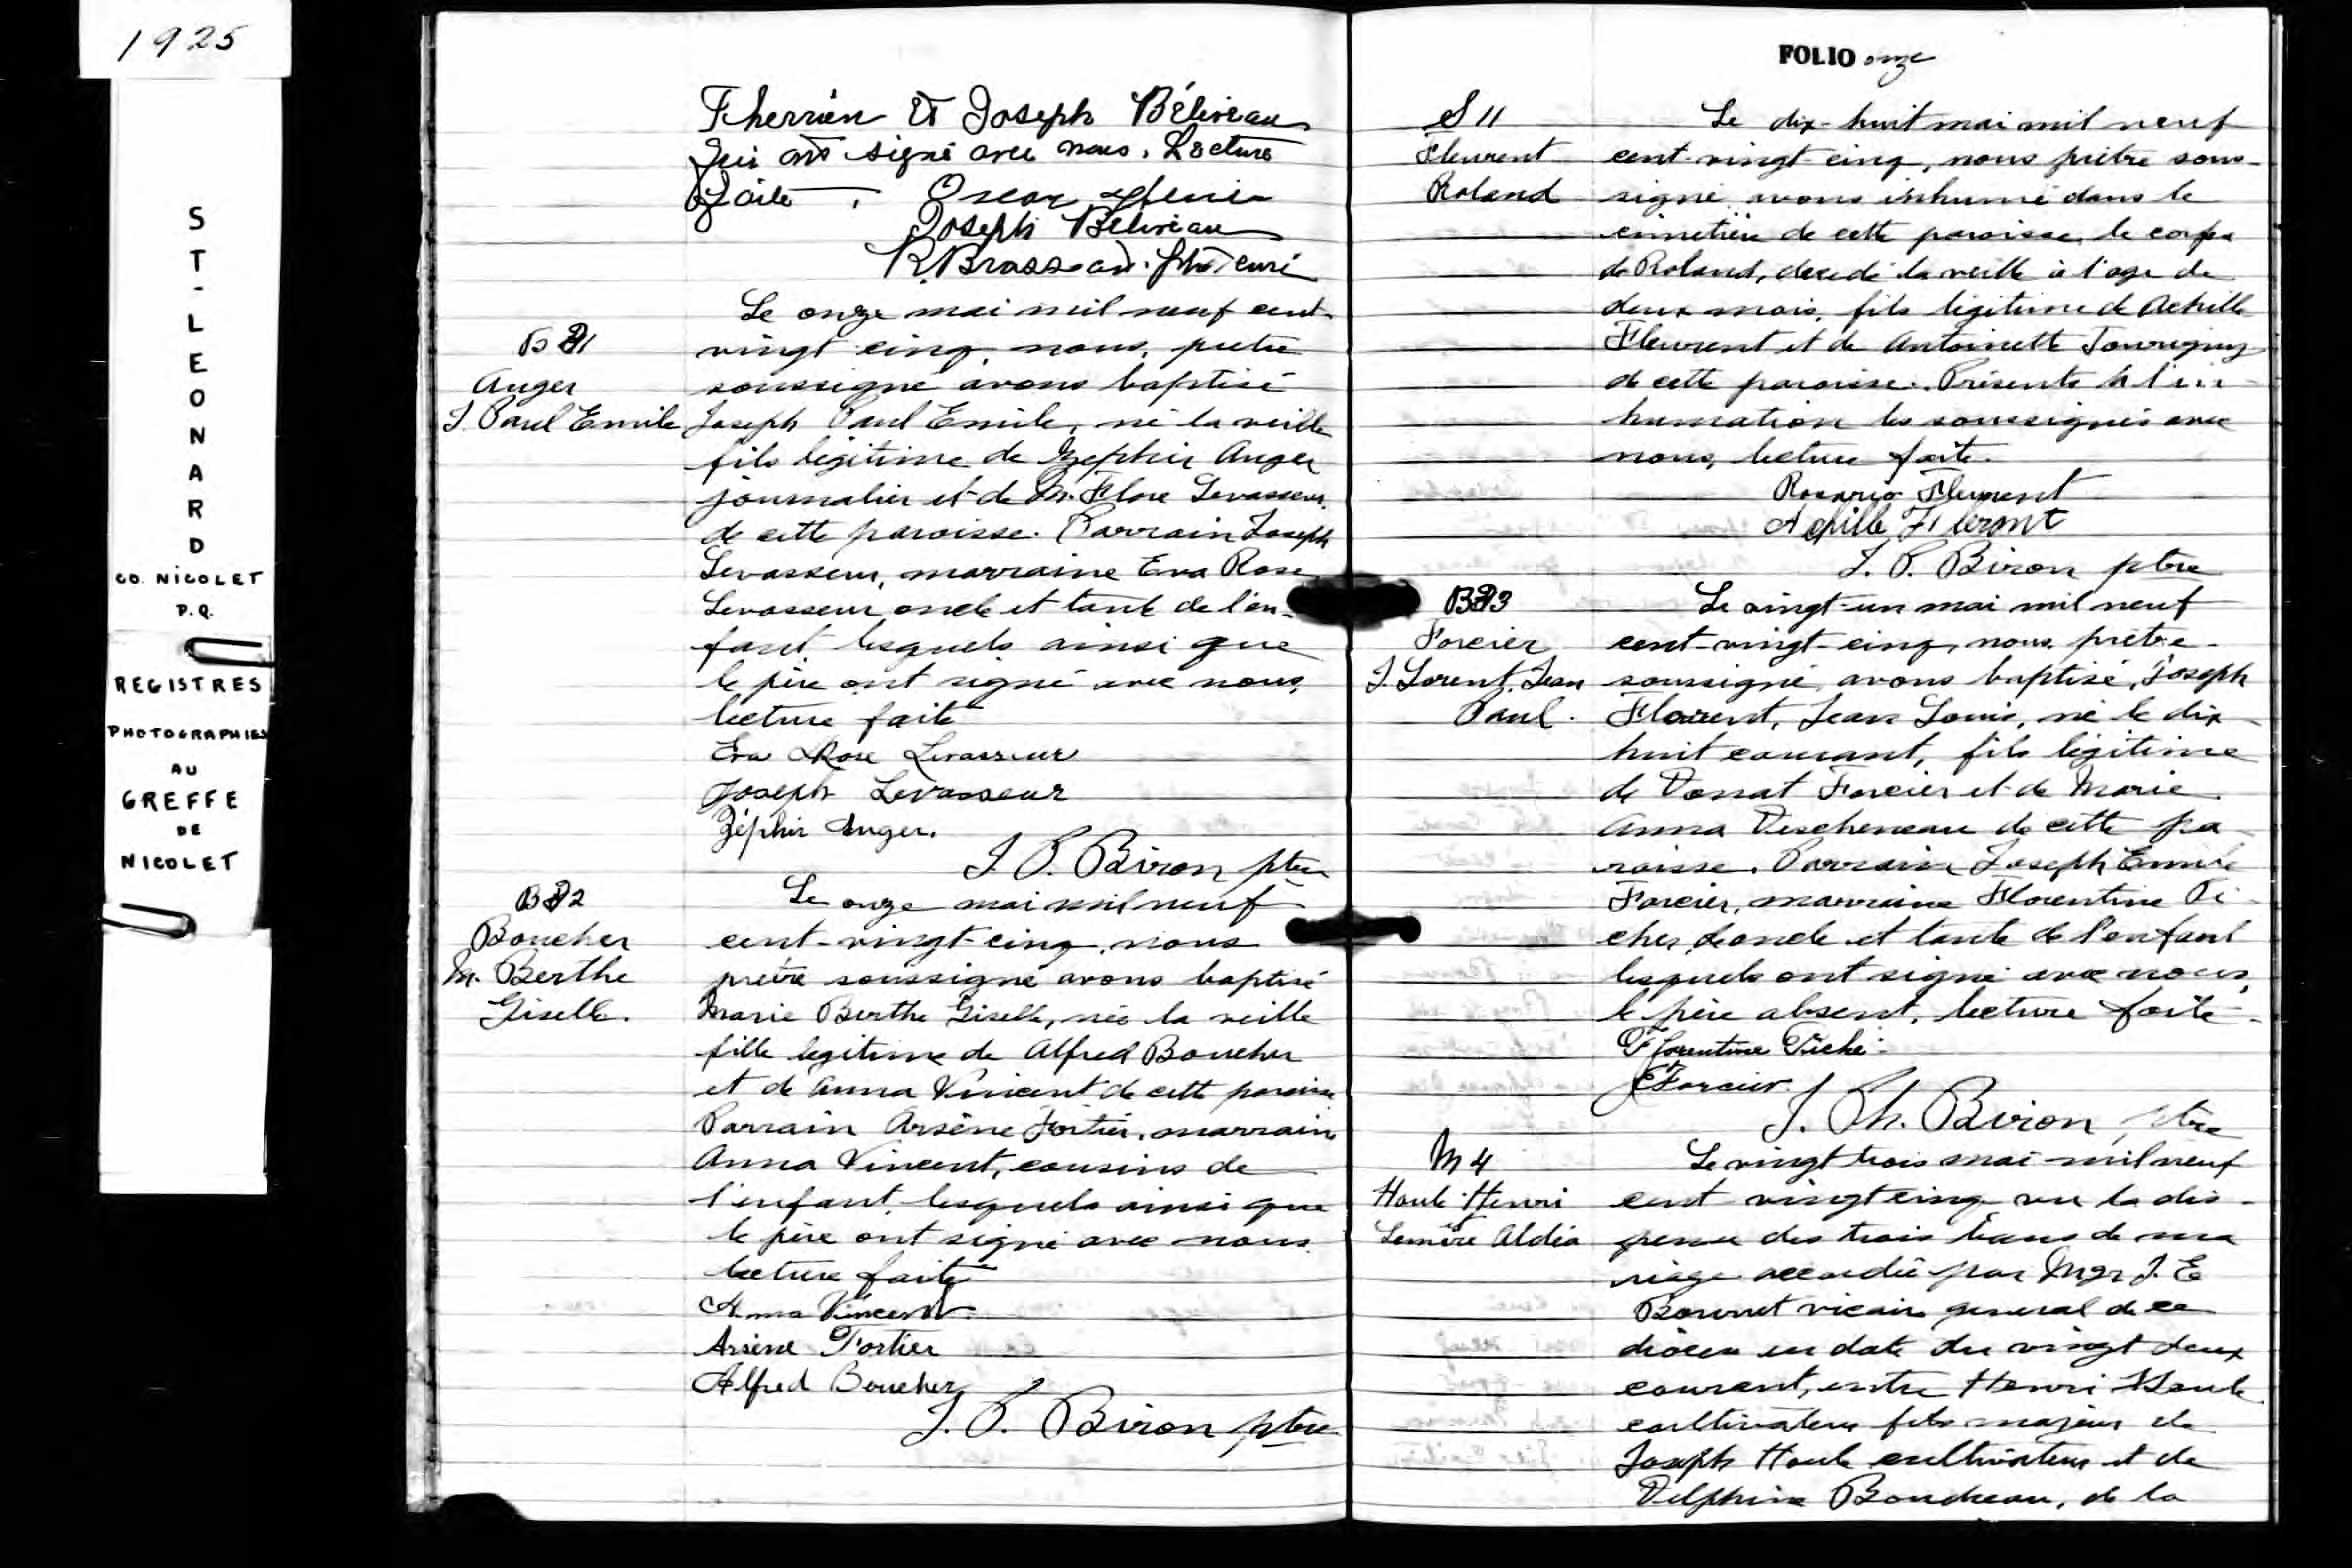 1925
ST-LEONARD
CO. NICOLET
P.Q.
REGISTRES
PHOTOGRAPHIES
AU
GREFFE
DE
NICOLET
Therrien et Joseph Béliveau
qui ont signé avec nous. Lecture
faite. Oscar
Joseph Béliveau
R. Brassard. ptre curé
B 21
Anger
J. Paul Emile
Le onze mai mil neuf cent-
vingt cinq, nous, prêtre
soussigné avons baptisé
Joseph Paul Emile, né la veille
fils légitime de Zephir Anger
journalier et de M. Flore Levasseur
de cette paroisse. Parrain Joseph
Levasseur, marraine Eva Rose
Levasseur oncle et tante de l'en-
fant lesquels ainsi que
le père ont signé avec nous,
lecture faite
Eva Rose Levasseur
Joseph Levasseur
Zéphir Anger.
J. P. Biron ptre
B 22
Boucher
M. Berthe
Giselle.
Le onze mai mil neuf
cent-vingt-cinq, nous
prêtre soussigné avons baptisé
Marie Berthe Giselle, née la veille
fille legitime de Alfred Boucher
et de Anna Vincent de cette paroisse
Parrain Arsène Fortier, marraine
Anna Vincent, cousins de
l'enfant, lesquels ainsi que
le père ont signé avec nous
lecture faite
Anna Vincent
Arsène Fortier
Alfred Boucher
J. P. Biron ptre
FOLIO onze
S 11
Fleurent
Roland
Le dix-huit mai mil neuf
cent-vingt-cinq, nous prêtre sous-
signé avons inhumé dans le
cimetière de cette paroisse le corps
de Roland, décédé la veille à l'age de
deux mois, fils légitime de Achille
Fleurent et de Antoinette Tourigny
de cette paroisse. Présents à l'in-
humation les soussignés avec
nous, lecture faite.
Rosario Fleurent
Achille Fleront
J. P. Biron ptre
B 23
Forcier
J. Lorent, Jean
Paul.
Le vingt-un mai mil neuf
cent-vingt-cinq, nous prêtre
soussigné, avons baptisé, Joseph
Florent, Jean Louis, né le dix-
huit courant, fils légitime
de Donat Forcier et de Marie
Anna Descheneau de cette pa-
roisse. Parrain Joseph Emile
Forcier, marraine Florentine Pi-
cher, oncle et tante de l'enfant
lesquels ont signé avec nous,
le père absent, lecture faite.
Florentine Piché
Forcier.
J. Ph. Biron, ptre
M 4
Houle Henri
et
Lemire Aldéa
Le vingt trois mai mil neuf
cent vingt cinq vu la dis-
pense des trois bans de ma
riage accordée par Mgr J. E
Bourret vicaire general de ce
diocèse en date du vingt deux
courant, entre Henri Houle
cultivateur fils majeur de
Joseph Houle cultivateur et de
Delphine Boudreau, de la